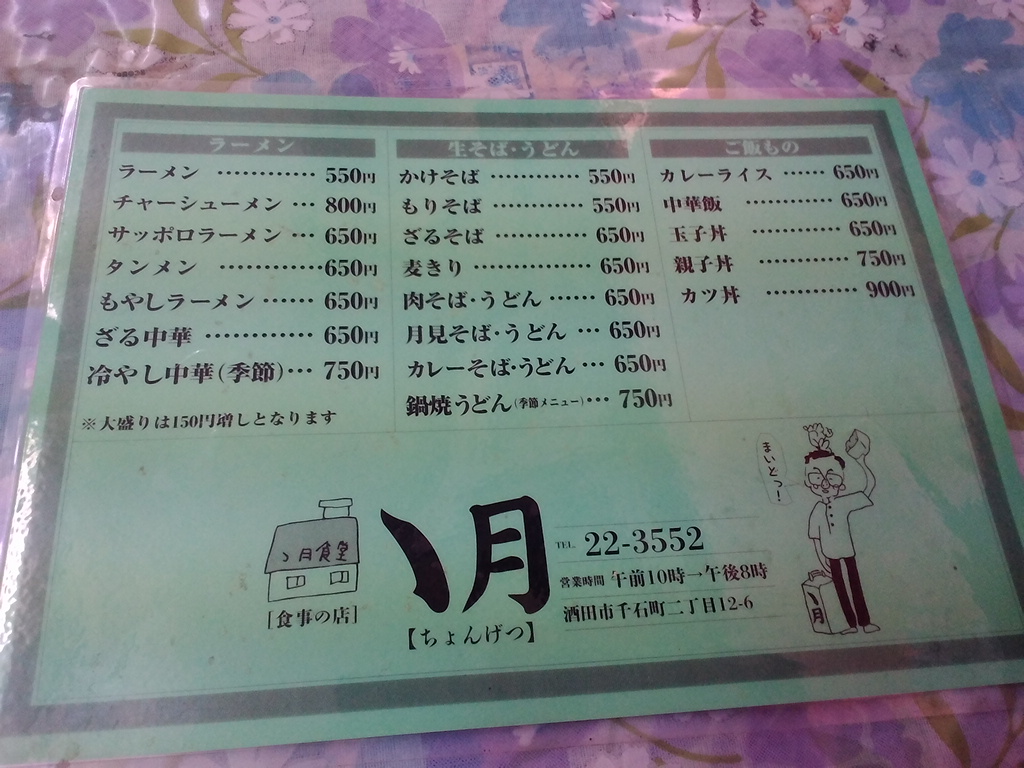 ラーメン
ラーメン ………… 550円
チャーシューメン … 800円
サッポロラーメン … 650円
タンメン ………… 650円
もやしラーメン …… 650円
ざる中華 ………… 650円
冷やし中華(季節)… 750円
※大盛りは150円増しとなります
生そば・うどん
かけそば ………… 550円
もりそば ………… 550円
ざるそば ………… 650円
麦きり ………… 650円
肉そば・うどん …… 650円
月見そば・うどん … 650円
カレーそば・うどん … 650円
鍋焼うどん(季節メニュー)… 750円
ご飯もの
カレーライス …… 650円
中華飯 ………… 650円
玉子丼 ………… 650円
親子丼 ………… 750円
カツ丼 ………… 900円
まいどっ!
ヽ月食堂
[食事の店]
ヽ月
【ちょんげつ】
TEL 22-3552
営業時間 午前10時→午後8時
酒田市千石町二丁目12-6
ヽ月